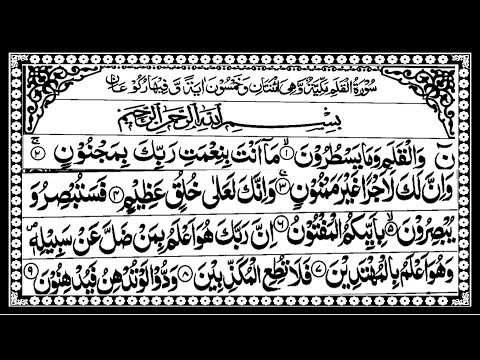 سُوْرَةُ الْقَلَمِ مَكِّيَّةٌ وَّهِيَ اثْنَتَانِ وَخَمْسُوْنَ اٰيَةً وَّ فِيْهَا رُكُوْعَانِ
بِسْمِ اللهِ الرَّحْمٰنِ الرَّحِيْمِ
نٓ وَالْقَلَمِ وَمَا يَسْطُرُوْنَ ۙ۝۱ مَاۤ اَنْتَ بِنِعْمَتِ رَبِّكَ بِمَجْنُوْنٍ ۚ۝۲
وَاِنَّ لَكَ لَاَجْرًا غَيْرَ مَمْنُوْنٍ ۚ۝۳ وَاِنَّكَ لَعَلٰى خُلُقٍ عَظِيْمٍ ۝۴ فَسَتُبْصِرُ وَ
يُبْصِرُوْنَ ۙ۝۵ بِاَيِّىكُمُ الْمَفْتُوْنُ ۝۶ اِنَّ رَبَّكَ هُوَ اَعْلَمُ بِمَنْ ضَلَّ عَنْ سَبِيْلِهٖ ۪
وَهُوَ اَعْلَمُ بِالْمُهْتَدِيْنَ ۝۷ فَلَا تُطِعِ الْمُكَذِّبِيْنَ ۝۸ وَدُّوْا لَوْ تُدْهِنُ فَيُدْهِنُوْنَ ۝۹